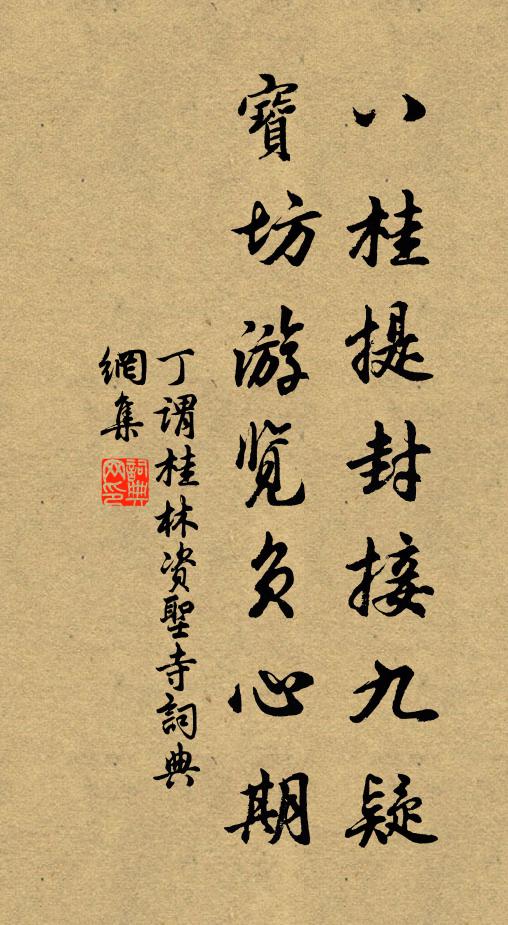 八桂提封接九疑
寶坊游览负心期
丁谓桂林资聖寺詞典
網集
詞典
网印